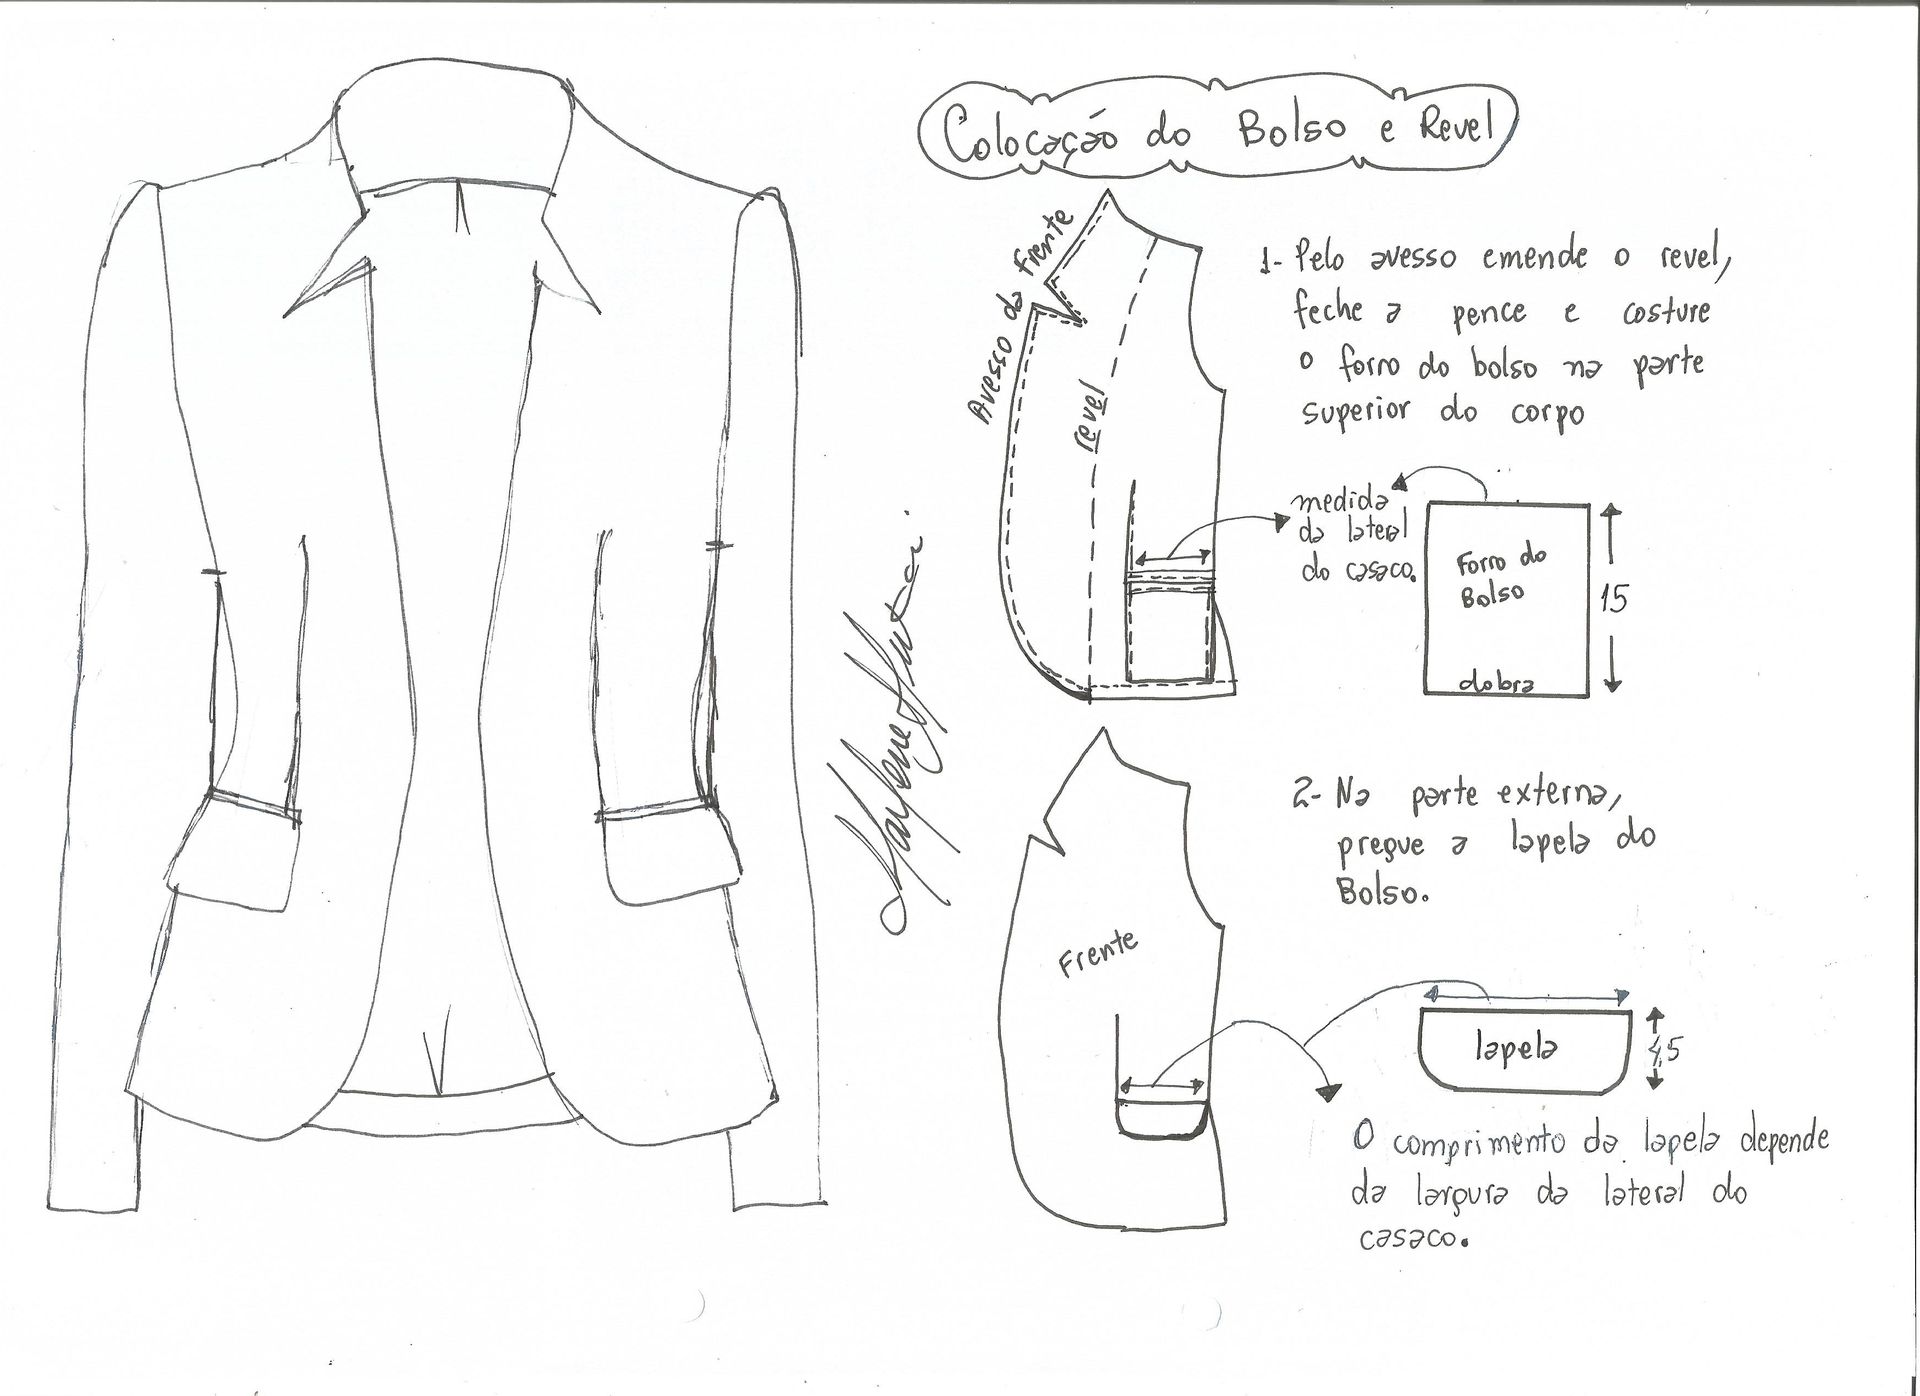 Colocação do Bolso e Revel
Avesso da Frente
revel
1- Pelo avesso emende o revel,
feche a pence e costure
o forro do bolso na parte
superior do corpo
medida
da lateral
do casaco.
Forro do
Bolso
dobra
15
2- Na parte externa,
pregue a lapela do
Bolso.
Frente
lapela
O comprimento da lapela depende
da largura da lateral do
casaco.